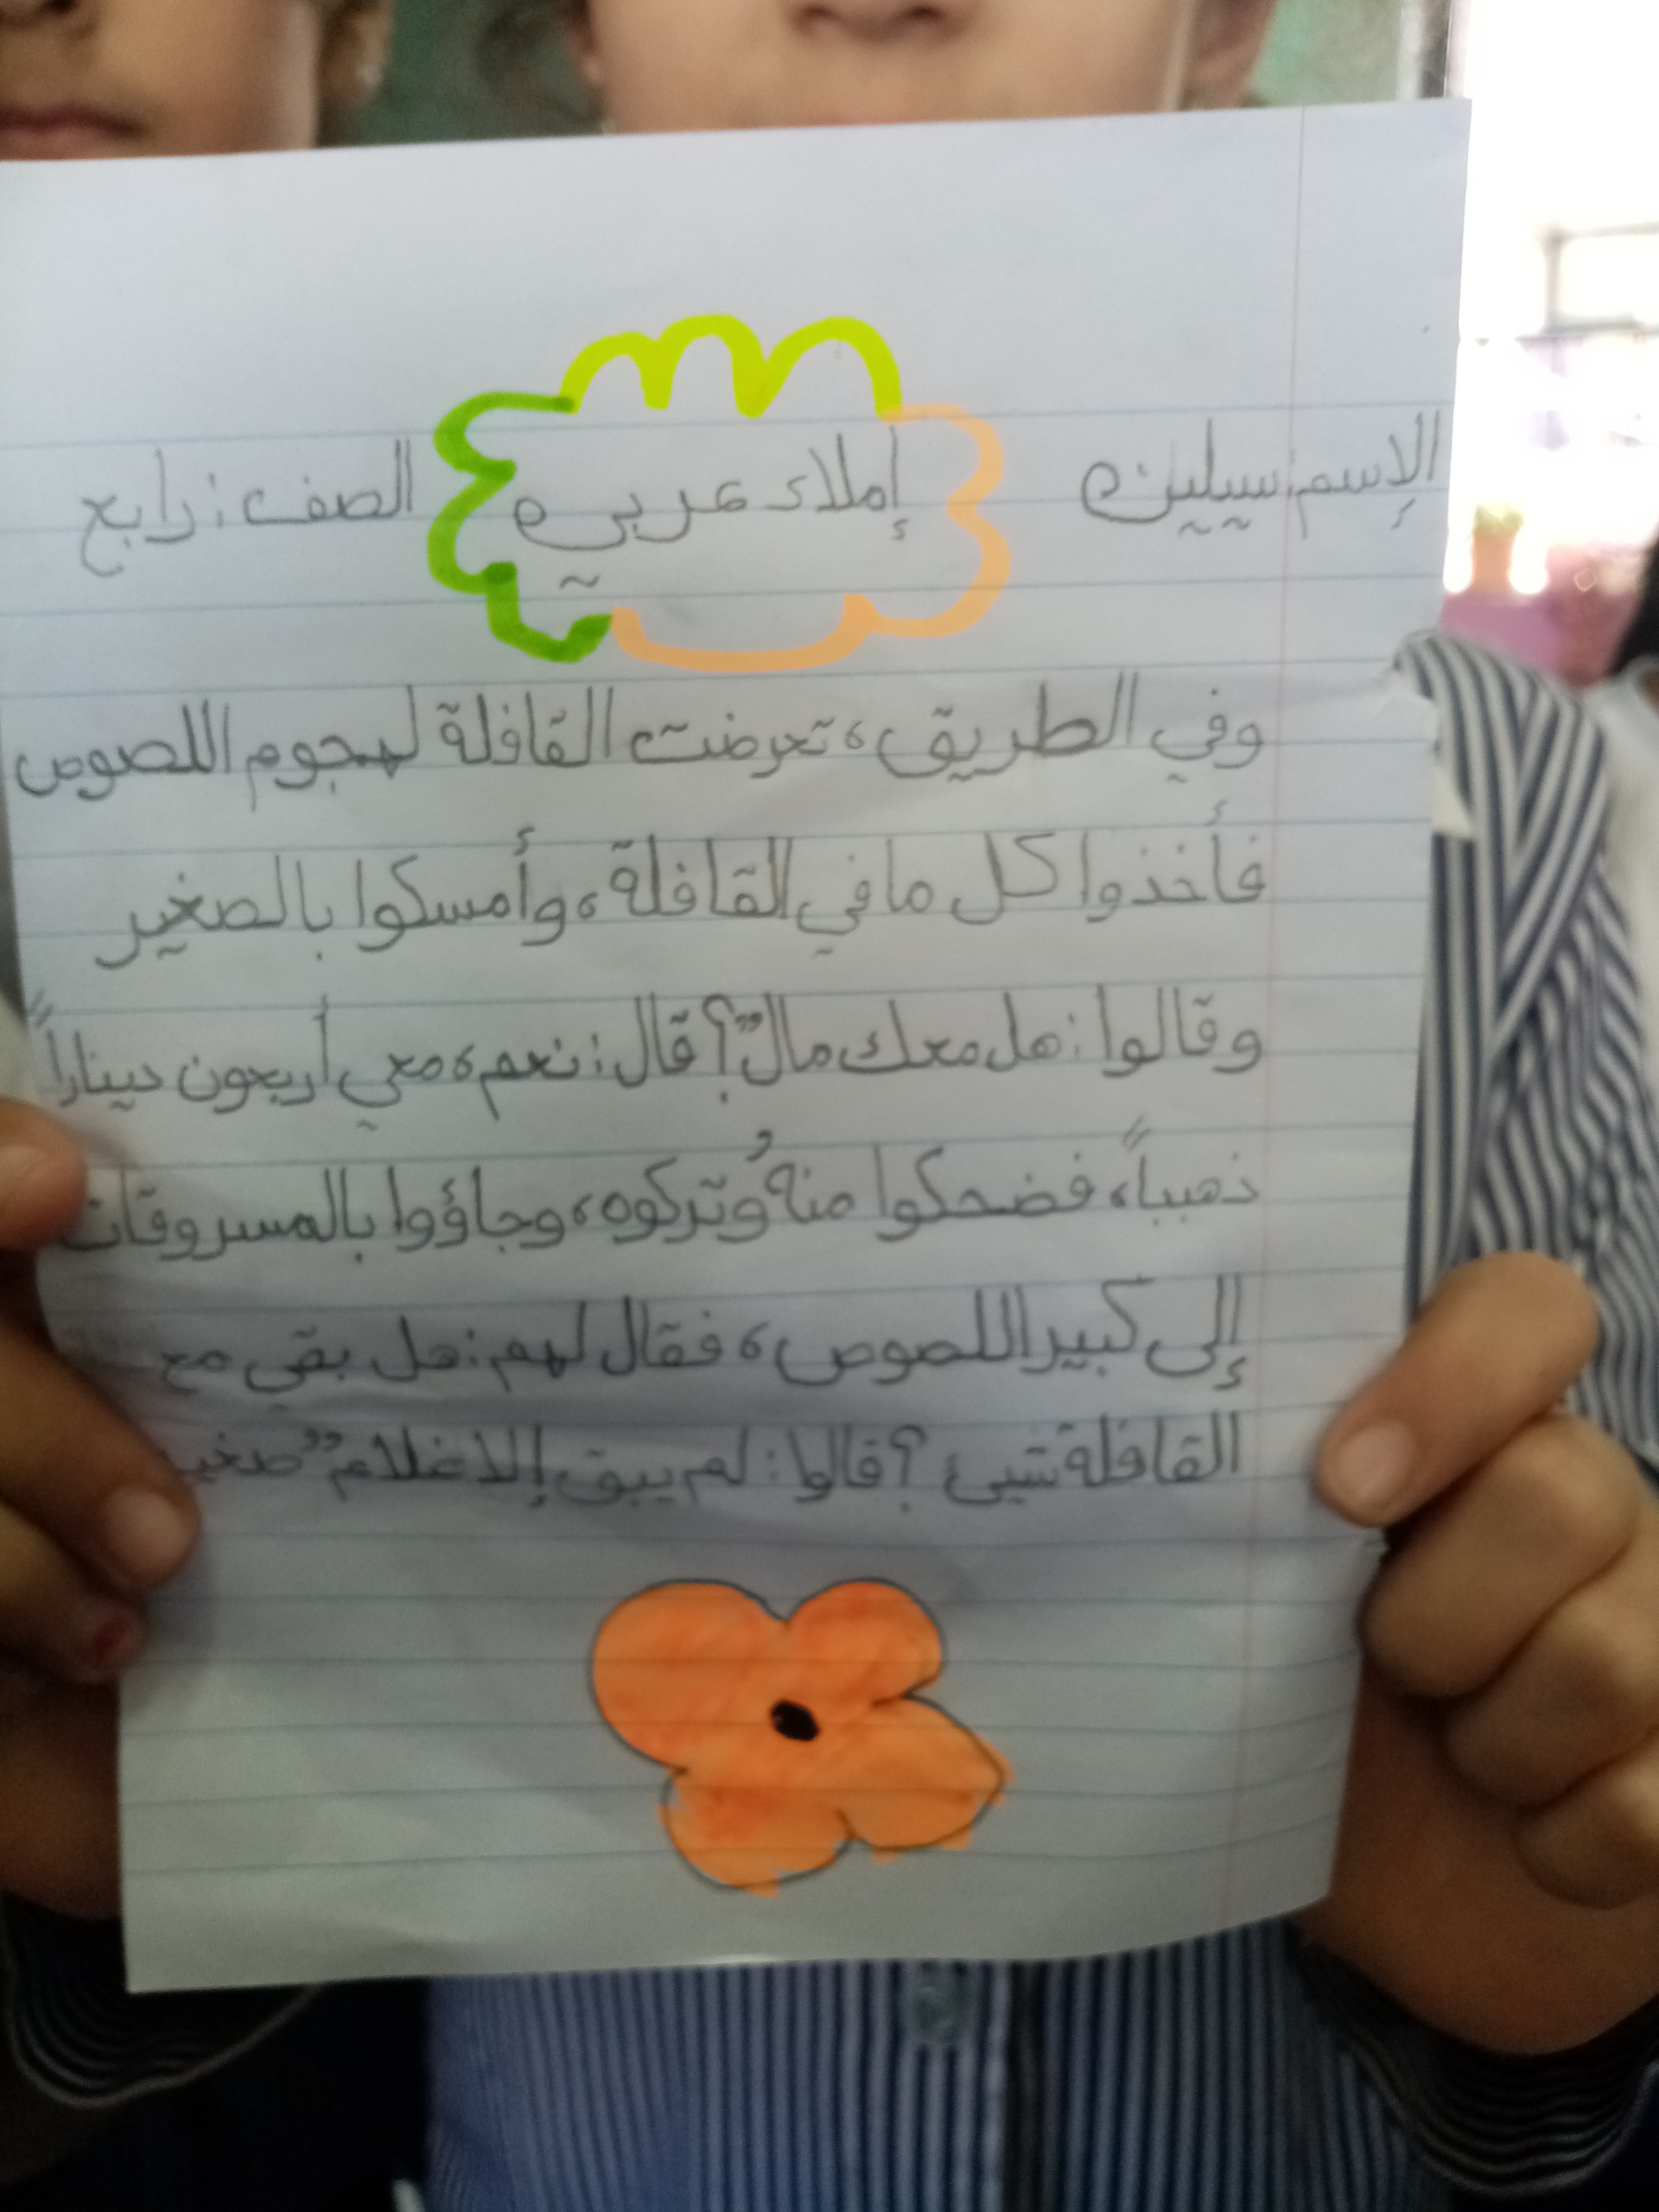 الإسم: سيلين إملاء عربي الصف: رابع
وفي الطريق، تعرضت القافلة لهجوم اللصوص
فأخذوا كل ما في القافلة، وأمسكوا بالصغير
وقالوا: هل معك مالٌ؟ قال: نعم، معي أربعون ديناراً
ذهبياً، فضحكوا منهُ وتركوه، وجاؤوا بالمسروقات
إلى كبير اللصوص، فقال لهم: هل بقي مع
القافلة شيئ؟ قالوا: لم يبق إلا غلامٌ